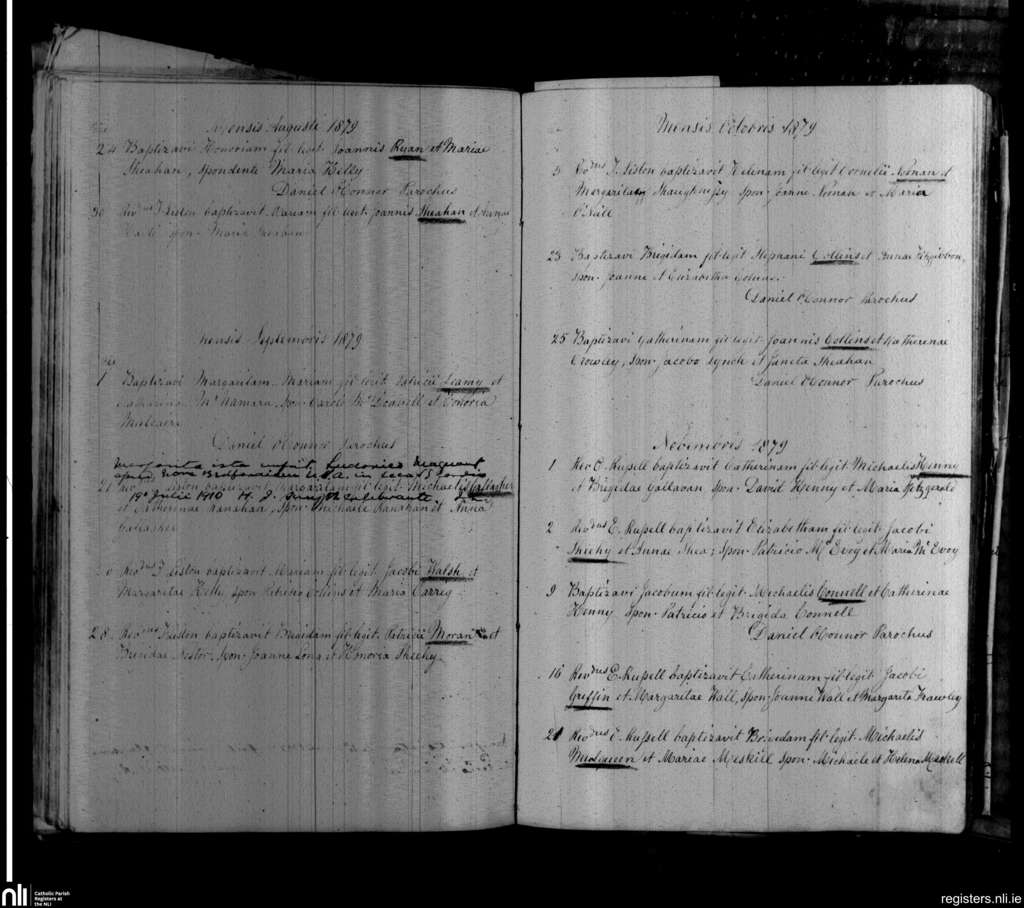 Mensis Augusti 1879
24 Baptizavi Honoriam fil· legit· Joannis Ryan et Mariae
Sheahan, spondente Maria Kelly
Daniel O'Connor Parochus
30 Rev^dus T Liston baptizavit Mariam fil· legit· Joannis Sheahan et Annae
spon· Maria Sheahan
Mensis Septembris 1879
1 Baptizavi Margaritam Mariam fil· legit· Patricii Leamy et
Catherinae M^cNamara, spon· Carolo M^cDonnell et Honoria
Mulcaire
Daniel O'Connor Parochus
ista nupsit Ludovico
21 Liston baptizavit Margaritam fil· legit· Michaelis Gallagher
19^a Julii 1910 H. J. celebrante
et Catherinae Ranahan, spon· Michaele Ranahan et Anna
Gallagher
Rev^dus T Liston baptizavit Mariam fil· legit· Jacobi Walsh et
Margaritae Kelly spon· Patricio Collins et Maria Carrig
28 Rev^dus T Liston baptizavit Brigidam fil· legit· Patricii Moran et
Brigidae Nestor, spon· Joanne Long et Honoria Sheehy
Mensis Octobris 1879
5 Rev^dus T. Liston baptizavit Helenam fil· legit Cornelii Noonan et
Margaritae Shaughnessy spon· Joanne Noonan et Maria
O'Neill
23 Baptizavi Brigidam fil· legit Stephani Collins et Annae Fitzgibbon,
spon· Joanne et Elizabetha
Daniel O'Connor Parochus
25 Baptizavi Catherinam fil· legit· Joannis Collins et Catherinae
Crowley, spon· Jacobo Lynch et Sheahan
Daniel O'Connor Parochus
Novembris 1879
1 Rev E. Russell baptizavit Catherinam fil· legit· Michaelis Kenny
et Brigidae Callaghan spon· David Kenny et Maria Fitzgerald
2 Rev^dus E. Russell baptizavit Elizabetham fil· legit· Jacobi
Sheehy et Annae Shea; spon· Patricio M^cEvoy et Maria M^cEvoy
9 Baptizavi Jacobum fil· legit· Michaelis Connell et Catherinae
Kenny spon· Patricio et Brigida Connell
Daniel O'Connor Parochus
16 Rev^dus E. Russell baptizavit Catherinam fil· legit· Jacobi
Griffin et Margaritae Wall, spon· Joanne Wall et Margarita Frawley
21 Rev^dus E. Russell baptizavit Brigidam fil· legit· Michaelis
Mulqueen et Mariae Meskill spon· Michaele et Helena Meskell
nli Catholic Parish
Registers at
the NLI
registers.nli.ie